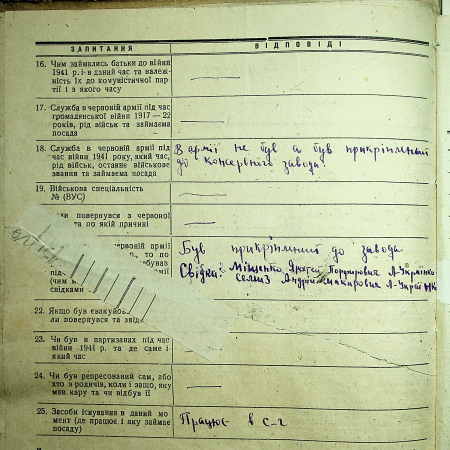 ЗАПИТАННЯ ВІДПОВІДІ
16. Чим займались батьки до війни
1941 р. і в даний час та належ-
ність їх до комуністичної пар-
тії і з якого часу
17. Служба в червоній армії під час
громадянської війни 1917—22
років, рід військ та займаєма
посада
18. Служба в червоній армії під
час війни 1941 року, який час,
рід військ, останнє військове
звання та займаєма посада
В армії не був а був прикріплений
до консервного завода
19. Військова спеціальність
№ (ВУС)
ли повернувся з червоної
та по якій причині
рвоній армії
то по
бував
під-
(чим
свідками
Був прикріплений до завода
Свідки: Міщенко Андрей Порфирович
Андрій Макарович
22. Якщо був евакуйов
ли повернувся та звід
23. Чи був в партизанах під час
війни 1941 р. та де саме і
який час
24. Чи був репресований сам, або
хто з родичів, коли і защо, яку
мав кару та чи відбув її
25. Засоби існування в даний мо-
мент (де працює і яку займає
посаду)
Працює в с-г